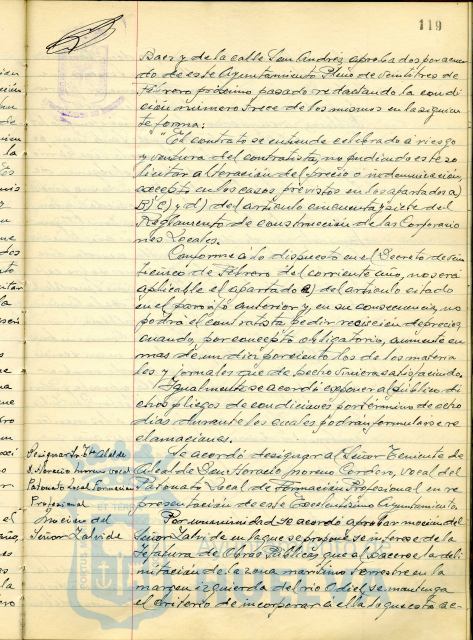 119
Baez y de la calle San Andrés, aprobados por acuer
do de este Ayuntamiento Pleno de veintitres de
Febrero próximo pasado redactando la condi
ción número trece de los mismos en la siguien
te forma:
"El contrato se entiende celebrado a riesgo
y ventura del contratista, no pudiendo este so
licitar alteración del precio o indemnización
excepto en los casos previstos en los apartados a)
B) C) y d) del artículo cincuenta y siete del
Reglamento de contratación de las Corporacio
nes Locales.
Conforme a lo dispuesto en el Decreto de vein
ticinco de Febrero del corriente año, no será
aplicable el apartado a) del artículo citado
en el parrafo anterior y, en su consecuencia, no
podrá el contratista pedir revisión de precios
cuando, por concepto obligatorio, aumente en
mas de un diez por ciento los de los materia
les y jornales que de hecho viniera satisfaciendo.
Igualmente se acordó exponer al público di
chos pliegos de condiciones por término de ocho
dias durante los cuales podran formularse re
clamaciones.
Designar tnte Alcalde
D. Horacio moreno vocal
Patonato Local Formación
Profesional
Se acordó designar al Señor Teniente de
Alcalde Don Horacio moreno Cordero, vocal del
Patonato Local de Formación Profesional en re
presentación de este Excelentísimo Ayuntamiento.
Mocion del
Señor
Por unanimidad se acordo aprobar mocion del
Señor en la que se propone se interese de la
Jefatura de Obras Públicas que al hacerse la deli
mitación de la zona maritimo terrestre en la
margen izquierda del rio Odiel, se mantenga
el criterio de incorporar a ella la que esta ac-